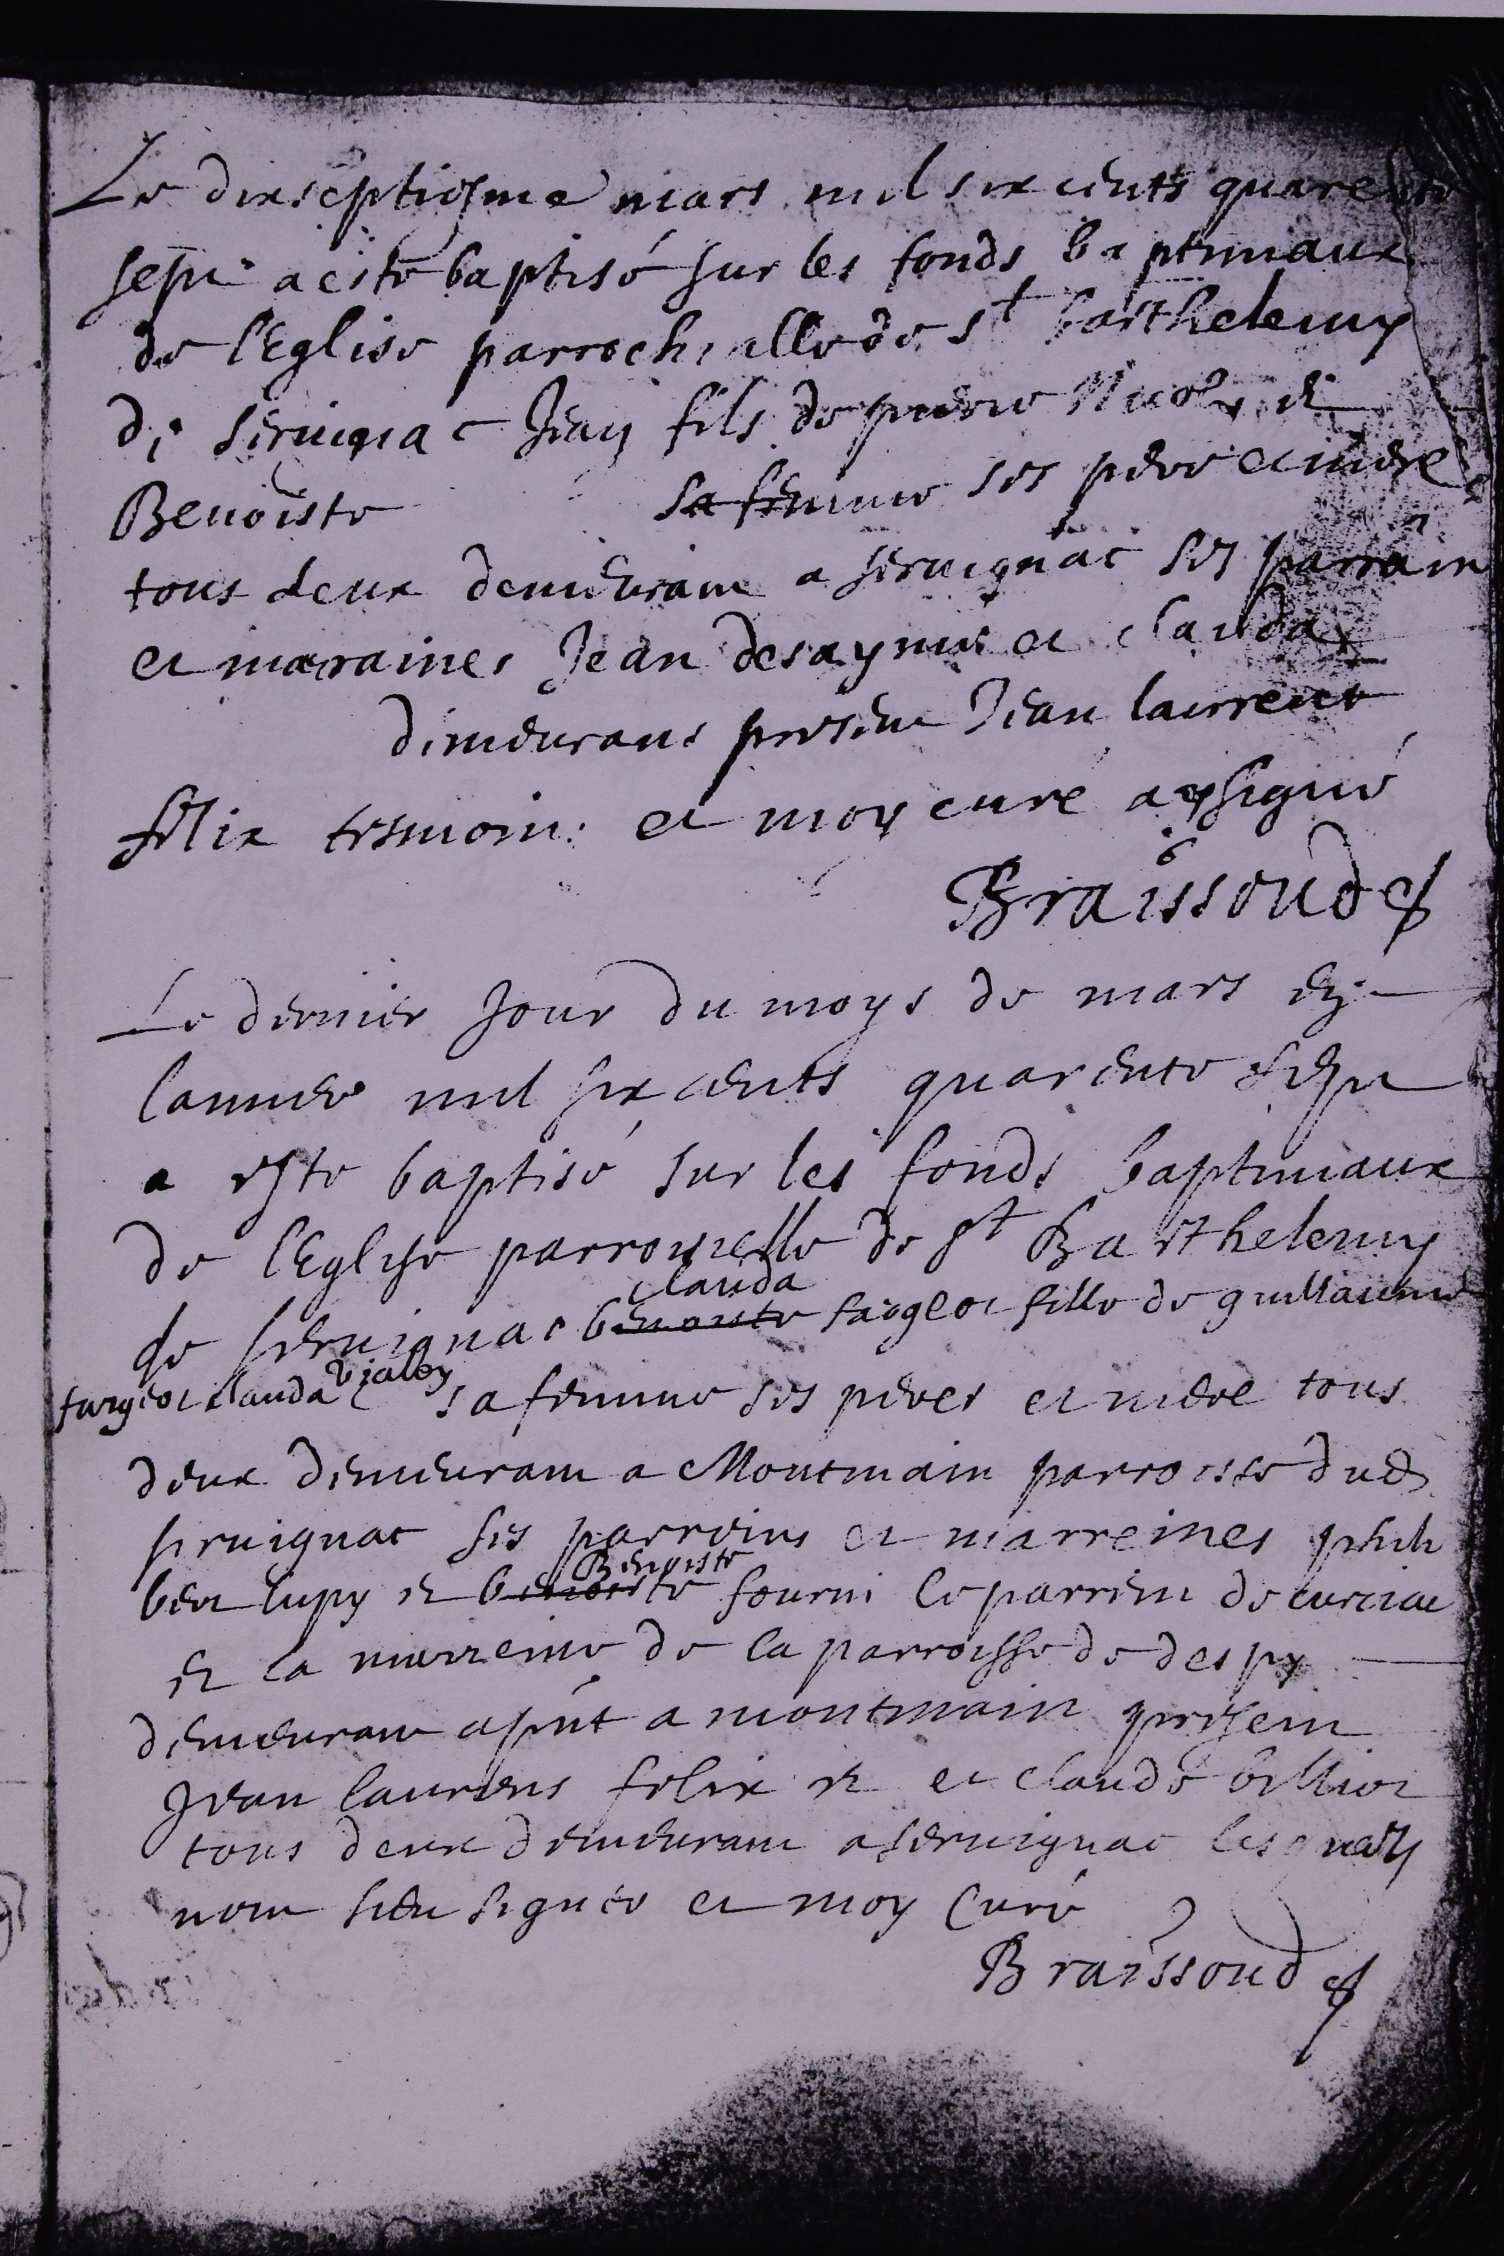 Le dixseptiesme mars mil six cents quarente
sept a esté baptisé sur les fonds baptimaux
de l'Eglise parrochialle de st barthelemy
de seruignac Jean fils de pierre Nicolas et
Benoiste sa femme ses pere et mere
tous deux demeurant a seruignac ses parrain
et maraines Jean desaymes et clauda
demeurans present Jean laurrent
felix tesmoin et moy curé ay signé
Braissoud
Le dernier Jour du moys de mars en
lannee mil six cents quarente sept
a este baptisé sur les fonds baptimaux
de l'Eglise parroissielle de st Barthelemy
clauda
de seruignac benoiste fargeot fille de guillaume
fargeot clauda vialey sa femme ses peres et mere tous
deux demeurant a Montmain parroisse dud
seruignac ses parreins et marreines phili
Benoiste
bert lupy et benoiste fourni le parrein de curciat
et la marreine de la parroisse de despy
demeurant apnt a montmain present
Jean laurens felix et et claude
tous deux demeurant a seruignac lesquels
nont sieu signer et moy Curé
Braissoud